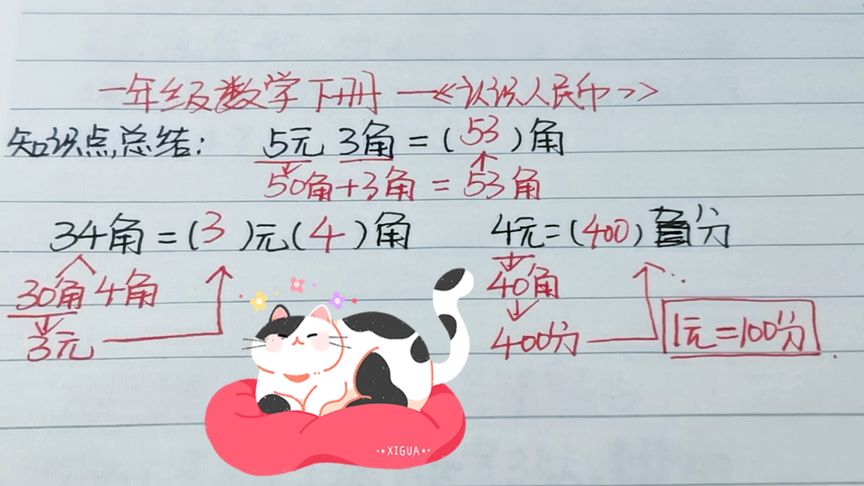 一年级数学下册一《认识人民币》
知识点总结: 5元3角=(53)角
50角+3角=53角
34角=(3)元(4)角 4元=(400)分
30角 4角 40角
3元 400分 1元=100分
XIGUA